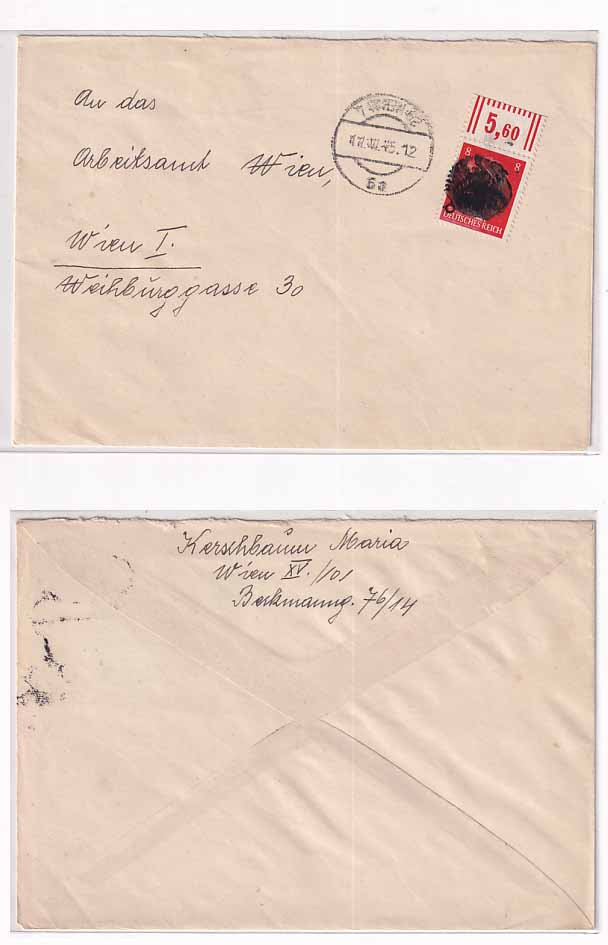 An das
Arbeitsamt Wien,
Wien I.
Weihburggasse 30
12
6a
5,60
8 8
DEUTSCHES REICH
Kerschbaum Maria
Wien XV./101
Berkmanng. 76/14